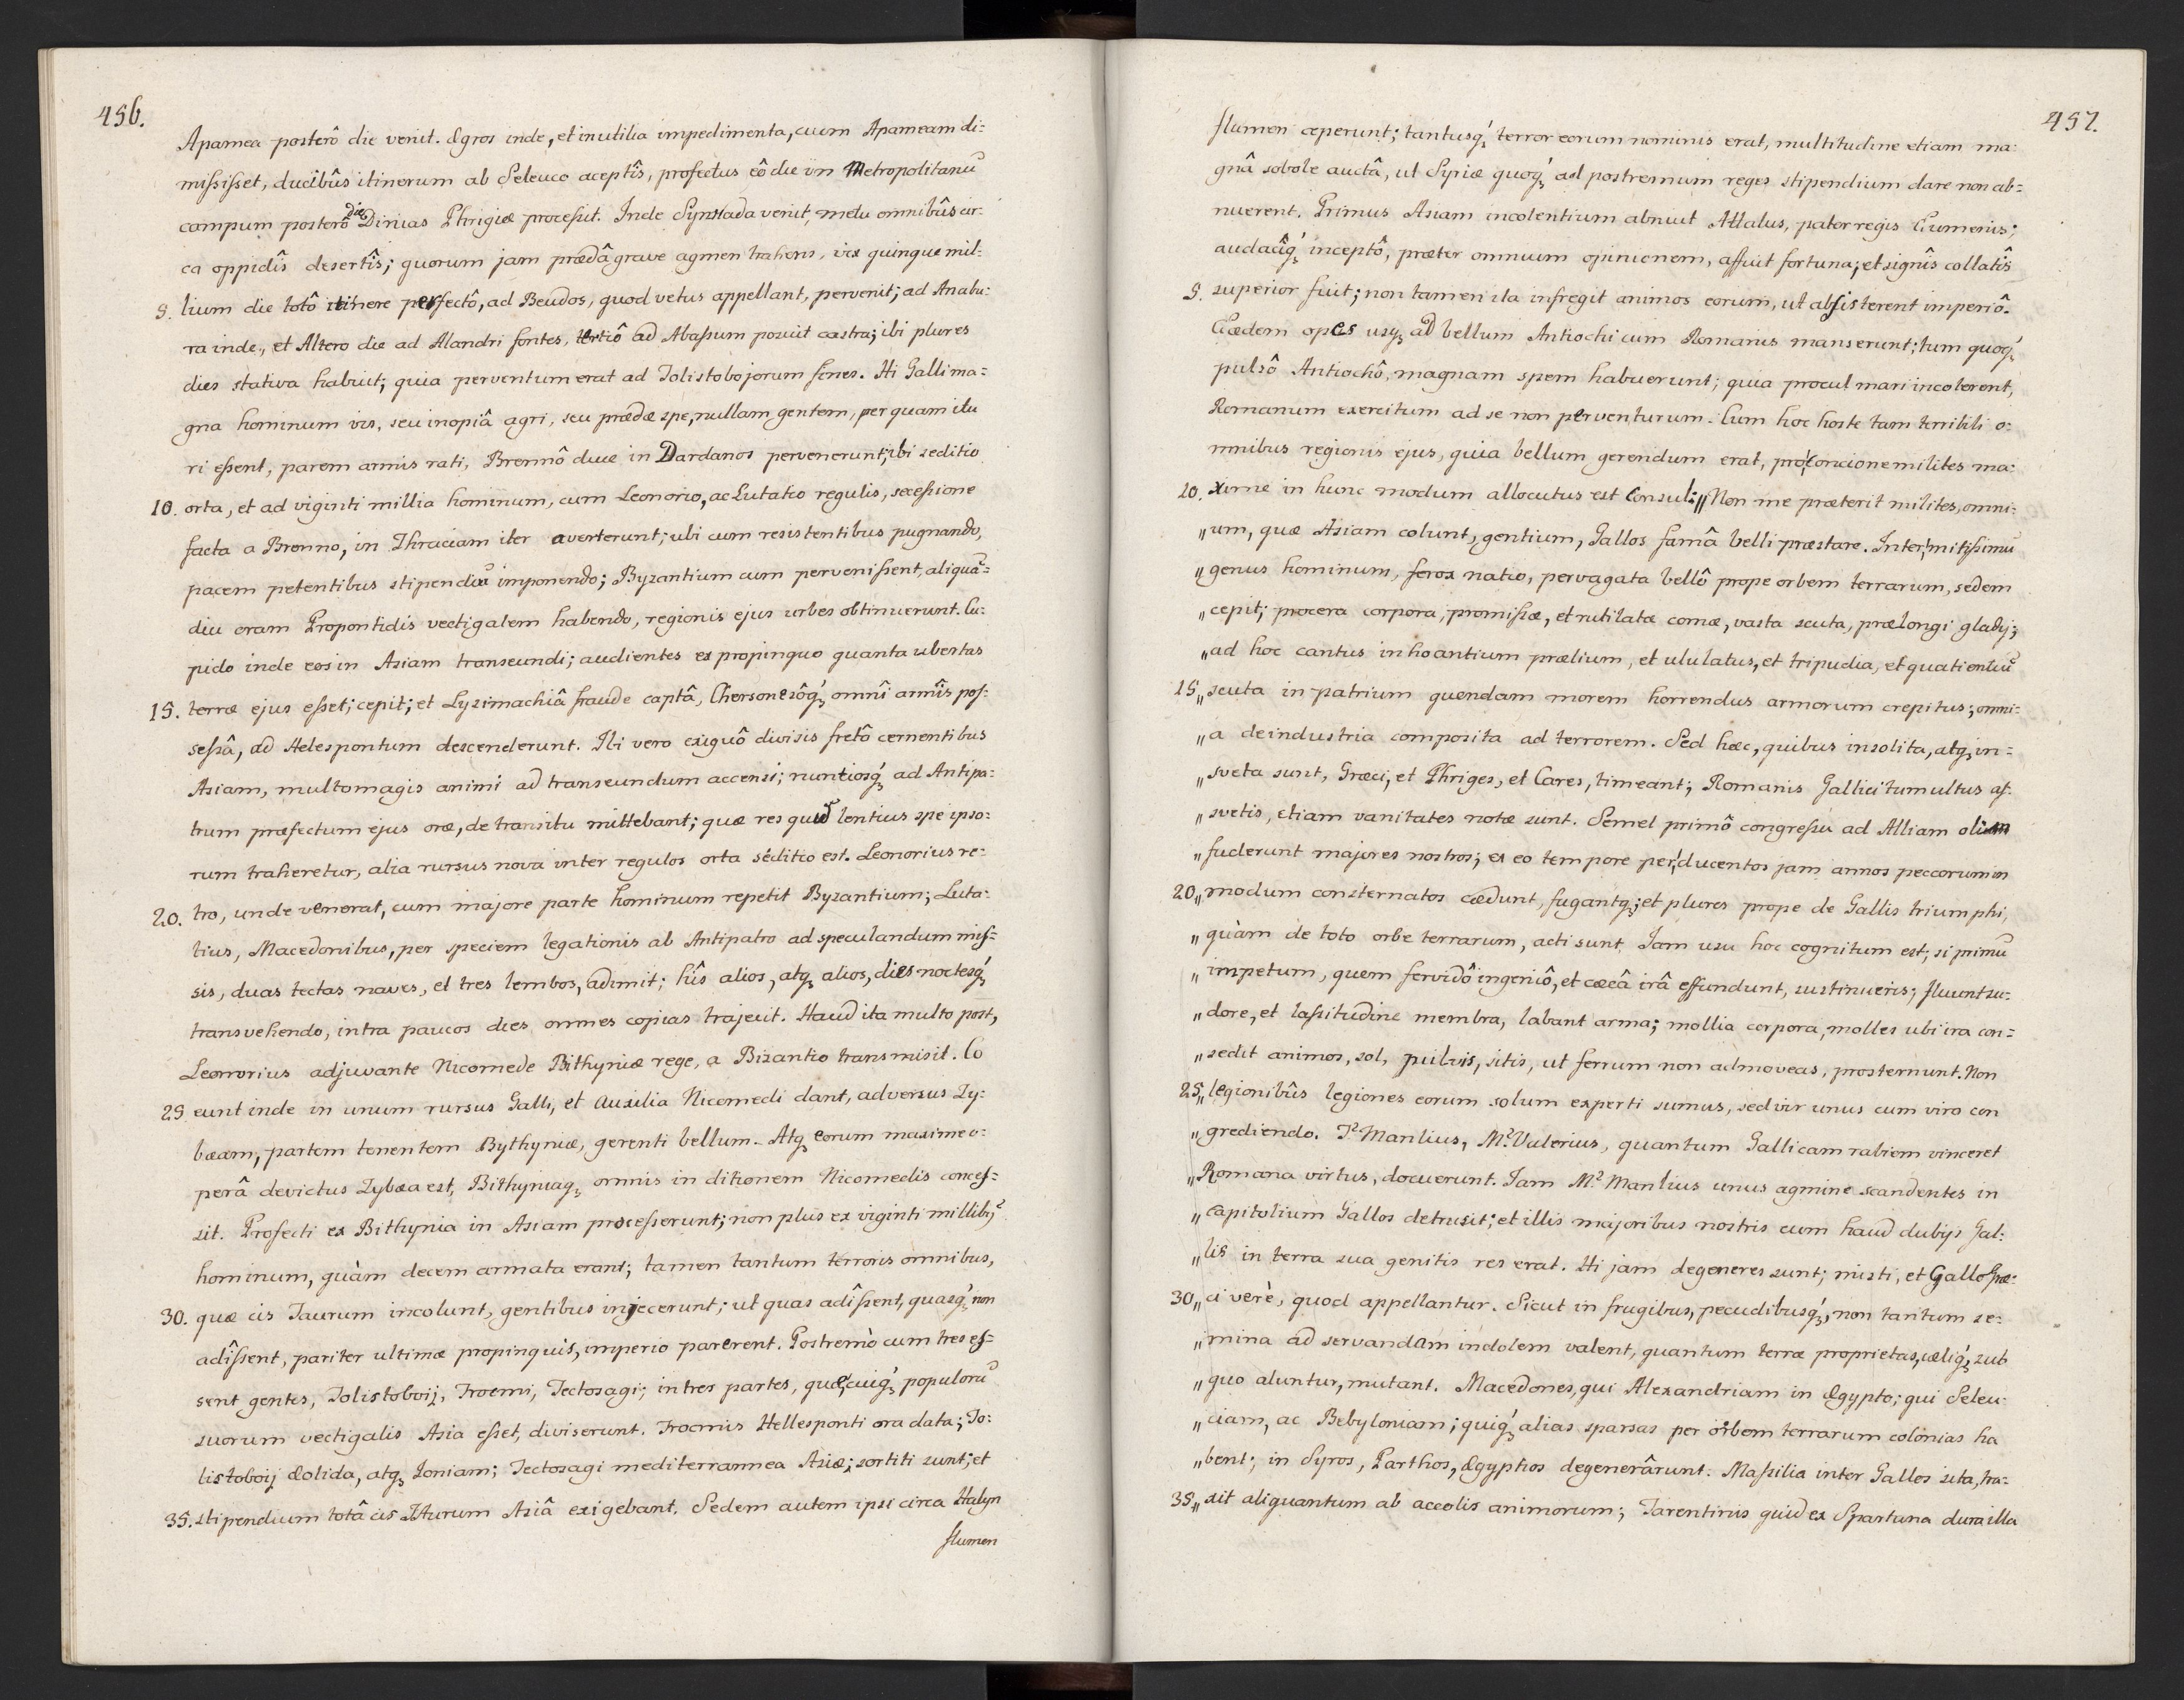 456.
Apamea posterô die venit. Ægros inde, et inutilia impedimenta, cum Apameam di=
misisset, ducibûs itinerum ab Seleuco aceptîs, profectus eô die in Metropolitanũ
campum posterô die Dinias Phrigiæ procesit. Inde Synnada venit, metu omnibûs cir=
ca oppidîs desertîs; quorum jam prædâ grave agmen trahens, vix quinque mil=
5. lium die totô itinere perfectô, ad Beudos, quod vetus appellant, pervenit; ad Anabu=
ra inde, et Altero die ad Alandri fontes, tertiô ad Abassum posuit castra; ibi plures
dies stativa habuit; quia perventum erat ad Tolistobojorum fines. Hi Galli ma=
gna hominum vis, seu inopiâ agri, seu prædæ spe, nullam gentem, per quam itu
ri essent, parem armis rati, Brennô duce in Dardanos pervenerunt; ibi seditio
10. orta, et ad viginti millia hominum, cum Leonorio, ac Lutatio regulis, secessione
facta a Brenno, in Thraciam iter averterunt; ubi cum resistentibus pugnando,
pacem petentibus stipendiũ imponendo; Byzantium cum pervenissent, aliquã=
diu oram Propontidis vectigalem habendo, regionis ejus urbes obtinuerunt. Cu=
pido inde eos in Asiam transeundi; audientes ex propinquo quanta ubertas
15. terræ ejus esset; cepit; et Lysimachiâ fraude captâ, Chersonesôq́ꝫ omnî armîs pos=
sessâ, ad Helespontum descenderunt. Ibi vero exiguô divisis fretô cernentibus
Asiam, multo magis animi ad transeundum accensi; nuntiosq́ꝫ ad Antipa=
trum præfectum ejus oræ, de transitu mittebant; quæ res quũ lentius spe ipso=
rum traheretur, alia rursus nova inter regulos orta séditio est. Leonorius re=
20. tro, unde venerat, cum majore parte hominum repetit Byzantium; Luta=
tius, Macedonibus, per speciem legationis ab Antipatro ad speculandum mis=
sis, duas tectas naves, et tres lembos, adimit; hîs alios, atqꝫ alios, dies noctesq́ꝫ
transvehendo, intra paucos dies omnes copias trajecit. Haud ita multo post,
Leonorius adjuvante Nicomede Bithyniæ rege, a Bizantio transmisit. Co
25 eunt inde in unum rursus Galli, et auxilia Nicomedi dant, adversus Zy=
bæam, partem tenentem Bythyniæ, gerenti bellum. Atqꝫ eorum maxime o=
perâ devictus Zybæa est, Bithyniaqꝫ omnis in ditionem Nicomedis conces=
sit. Profecti ex Bithynia in Asiam processerunt; non plus ex viginti millibꝫ
hominum, quàm decem armata erant; tamen tantum terroris omnibus,
30. quæ cis Taurum incolunt, gentibus injecerunt; ut quas adîssent, quasq́ꝫ non
adîssent, pariter ultimæ propinquis, imperio parerent. Postremò cum tres es=
sent gentes, Tolistoboij, Trocmi, Tectosagi; in tres partes, quæ, cuiq́ꝫ populorũ
suorum vectigalis Asia esset, diviserunt. Trocmis Hellesponti ora data; To=
listoboij Æolida, atqꝫ Joniam; Tectosagi mediterrannea Asiæ; sortiti sunt; et
35. stipendium totâ cis Tturum Asiâ exigebant. Sedem autem ipsi circa Halyn
flumen
457.
flumen ceperunt; tantusq́ꝫ terror eorum nominis erat, multitudine etiam ma=
gnâ sobole auctâ, ut Syriæ quoq́ꝫ ad postremum reges stipendium dare non ab=
nuerent. Primus Asiam incolentium abnuit Attalus, pater regis Eumenis;
audacîq́ꝫ inceptô, præter omnium opinionem, affuit fortuna; et signîs collatîs
5. superior fuit; non tamen ita infregit animos eorum, ut absisterent imperiô.
Eædem opes usqꝫ ad bellum Antiochi cum Romanis manserunt; tum quoq́ꝫ
pulsô Antiochô, magnam spem habuerunt; quia procul mari incolerent,
Romanum exercitum ad se non perventurum. Cum hoc hoste tam terribili o=
mnibus regionis ejus, quia bellum gerendum erat, pro, concione milites ma=
10. xime in hunc modum allocutus est Consul: „Non me præterit milites, omni=
„um, quæ Asiam colunt, gentium, Gallos famâ belli præstare. Inter, mitissimũ
„genus hominum, ferox natio, pervagata bellô prope orbem terrarum, sedem
„cepit; procera corpora, promissæ, et rutilatæ comæ, vasta scuta, prælongi gladij;
„ad hoc cantus inhoantium prælium, et ululatus, et tripudia, et quatientiũ
15„ scuta in patrium quendam morem horrendus armorum crepitus; omni=
„a de industria composita ad terrorem. Sed hæc, quibus insolita, atqꝫ in=
„sveta sunt, Græci, et Phriges, et Cares, timeant; Romanis Gallici tumultus as=
„svetis, etiam vanitates notæ sunt. Semel primô congressu ad Alliam olim
„fuderunt majores nostros; ex eo tempore per, ducentos jam annos peccorum in
20„ modum consternatos cædunt, fugantqꝫ; et plures prope de Gallis triumphi,
„quàm de toto orbe terrarum, acti sunt. Jam usu hoc cognitum est; si primũ
„impetum, quem fervidô ingeniô, et cæcâ irâ effundunt, sustinueris; fluunt su=
„dore, et lassitudine membra, labant arma; mollia corpora, molles ubi ira con=
„sedit animos, sol, pulvis, sitis, ut ferrum non admoveas, prosternunt. Non
25„ legionibûs legiones eorum solum experti sumus, sed vir unus cum viro con
„grediendo. T. Manlius, M. Valerius, quantum Gallicam rabiem vinceret
„Romana virtus, docuerunt. Jam M. Manlius unus agmine scandentes in
„Capitolium Gallos detrusit; et illis majoribus nostris cum haud dubijs Gal=
„lis in terra sua genitis res erat. Hi jam degeneres sunt; misti, et Gallo Græ=
30„ ci verè, quod appellantur. Sicut in frugibus, pecudibusq́ꝫ, non tantum se=
„mina ad servandam indolem valent, quantum terræ proprietas, cæliq́ꝫ, sub
„quo aluntur, mutant. Macedones, qui Alexandriam in Ægypto; qui Seleu=
„ciam, ac Bebyloniam; quiq́ꝫ alias sparsas per orbem terrarum colonias ha
„bent; in Syros, Parthos, Ægyptios degenerârunt. Massilia inter Gallos sita, tra=
35„ xit aliquantum ab accolis animorum; Tarentinis quid ex Spartana dura illa